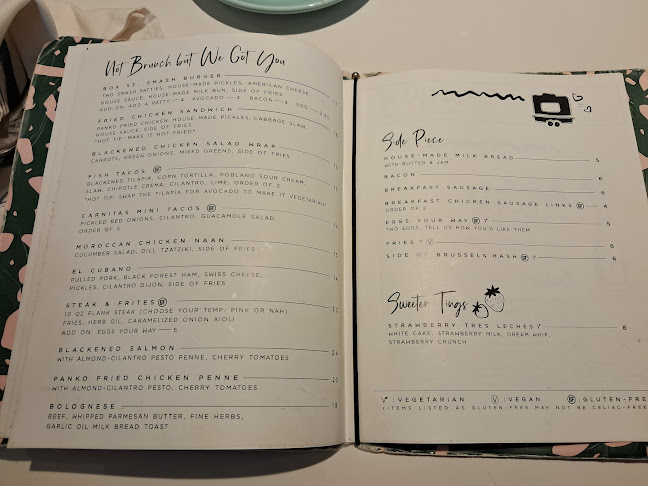 Not Brunch but We Got You
BOX ST. SMASH BURGER
TWO SMASH PATTIES, HOUSE-MADE PICKLES, AMERICAN CHEESE,
HOUSE SAUCE, HOUSE-MADE MILK BUN, SIDE OF FRIES
ADD-ON: ADD A PATTY — 4 AVOCADO — 4 BACON — 4 EGG
FRIED CHICKEN SANDWICH
PANKO FRIED CHICKEN, HOUSE-MADE PICKLES, CABBAGE SLAW,
HOUSE SAUCE, SIDE OF FRIES
*HOT TIP: MAKE IT HOT FRIED*
BLACKENED CHICKEN SALAD WRAP
CARROTS, GREEN ONIONS, MIXED GREENS, SIDE OF FRIES
FISH TACOS GF
BLACKENED TILAPIA, CORN TORTILLA, POBLANO SOUR CREAM
SLAW, CHIPOTLE CREMA, CILANTRO, LIME, ORDER OF 2
*HOT TIP: SWAP THE TILAPIA FOR AVOCADO TO MAKE IT VEGETARIAN*
CARNITAS MINI TACOS GF
PICKLED RED ONIONS, CILANTRO, GUACAMOLE SALAD,
ORDER OF 5
MOROCCAN CHICKEN NAAN
CUCUMBER SALAD, DILL TZATZIKI, SIDE OF FRIES
EL CUBANO
PULLED PORK, BLACK FOREST HAM, SWISS CHEESE,
PICKLES, CILANTRO DIJON, SIDE OF FRIES
STEAK & FRITES GF
10 OZ FLANK STEAK (CHOOSE YOUR TEMP: PINK OR NAH)
FRIES, HERB OIL, CARAMELIZED ONION AIOLI
ADD ON: EGGS YOUR WAY — 5
BLACKENED SALMON
WITH ALMOND-CILANTRO PESTO PENNE, CHERRY TOMATOES
PANKO FRIED CHICKEN PENNE
WITH ALMOND-CILANTRO PESTO, CHERRY TOMATOES
BOLOGNESE 18
BEEF, WHIPPED PARMESAN BUTTER, FINE HERBS,
GARLIC OIL MILK BREAD TOAST
Side Piece
HOUSE-MADE MILK BREAD 5
WITH BUTTER & JAM
BACON 6
BREAKFAST SAUSAGE 6
BREAKFAST CHICKEN SAUSAGE LINKS GF 4
ORDER OF 2
EGGS YOUR WAY GF V 5
TWO EGGS, TELL US HOW YOU'D LIKE THEM
FRIES V V 6
SIDE OF BRUSSELS HASH GF V 6
Sweeter Tings
STRAWBERRY TRES LECHES V 8
WHITE CAKE, STRAWBERRY MILK, DREAM WHIP,
STRAWBERRY CRUNCH
V :VEGETARIAN V :VEGAN GF :GLUTEN-FRE
(ITEMS LISTED AS GLUTEN-FREE MAY NOT BE CELIAC-FREE